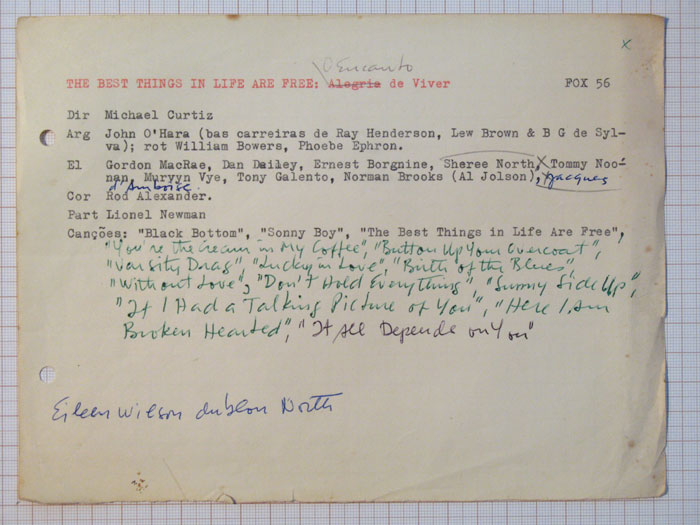 O Encanto
x
THE BEST THINGS IN LIFE ARE FREE: Alegria de Viver FOX 56
Dir Michael Curtiz
Arg John O'Hara (bas carreiras de Ray Henderson, Lew Brown & B G de Syl-
va); rot William Bowers, Phoebe Ephron.
El Gordon MacRae, Dan Dailey, Ernest Borgnine, Sheree North, Tommy Noo-
nan, Murvyn Vye, Tony Galento, Norman Brooks (Al Jolson), Jacques
d'Amboise.
Cor Rod Alexander.
Part Lionel Newman
Canções: "Black Bottom", "Sonny Boy", "The Best Things in Life Are Free",
"You're the Cream in My Coffee", "Button Up Your Overcoat",
"Varsity Drag", "Lucky in Love", "Birth of the Blues",
"Without Love", "Don't Hold Everything", "Sunny Side Up",
"If I Had a Talking Picture of You", "Here I Am
Broken Hearted", "It All Depends on You"
Eileen Wilson dublou North